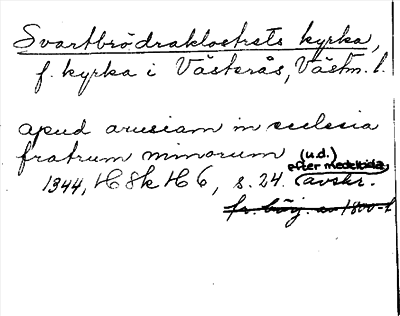 Svartbrödraklostrets kyrka,
f. kyrka i Västerås, Västm. l.
apud arusiam in ecclesia
fratrum minorum (u.d.)
efter medeltida
1344, H Sk H 6, s. 24. (avskr.
fr. börj. av 1800-t